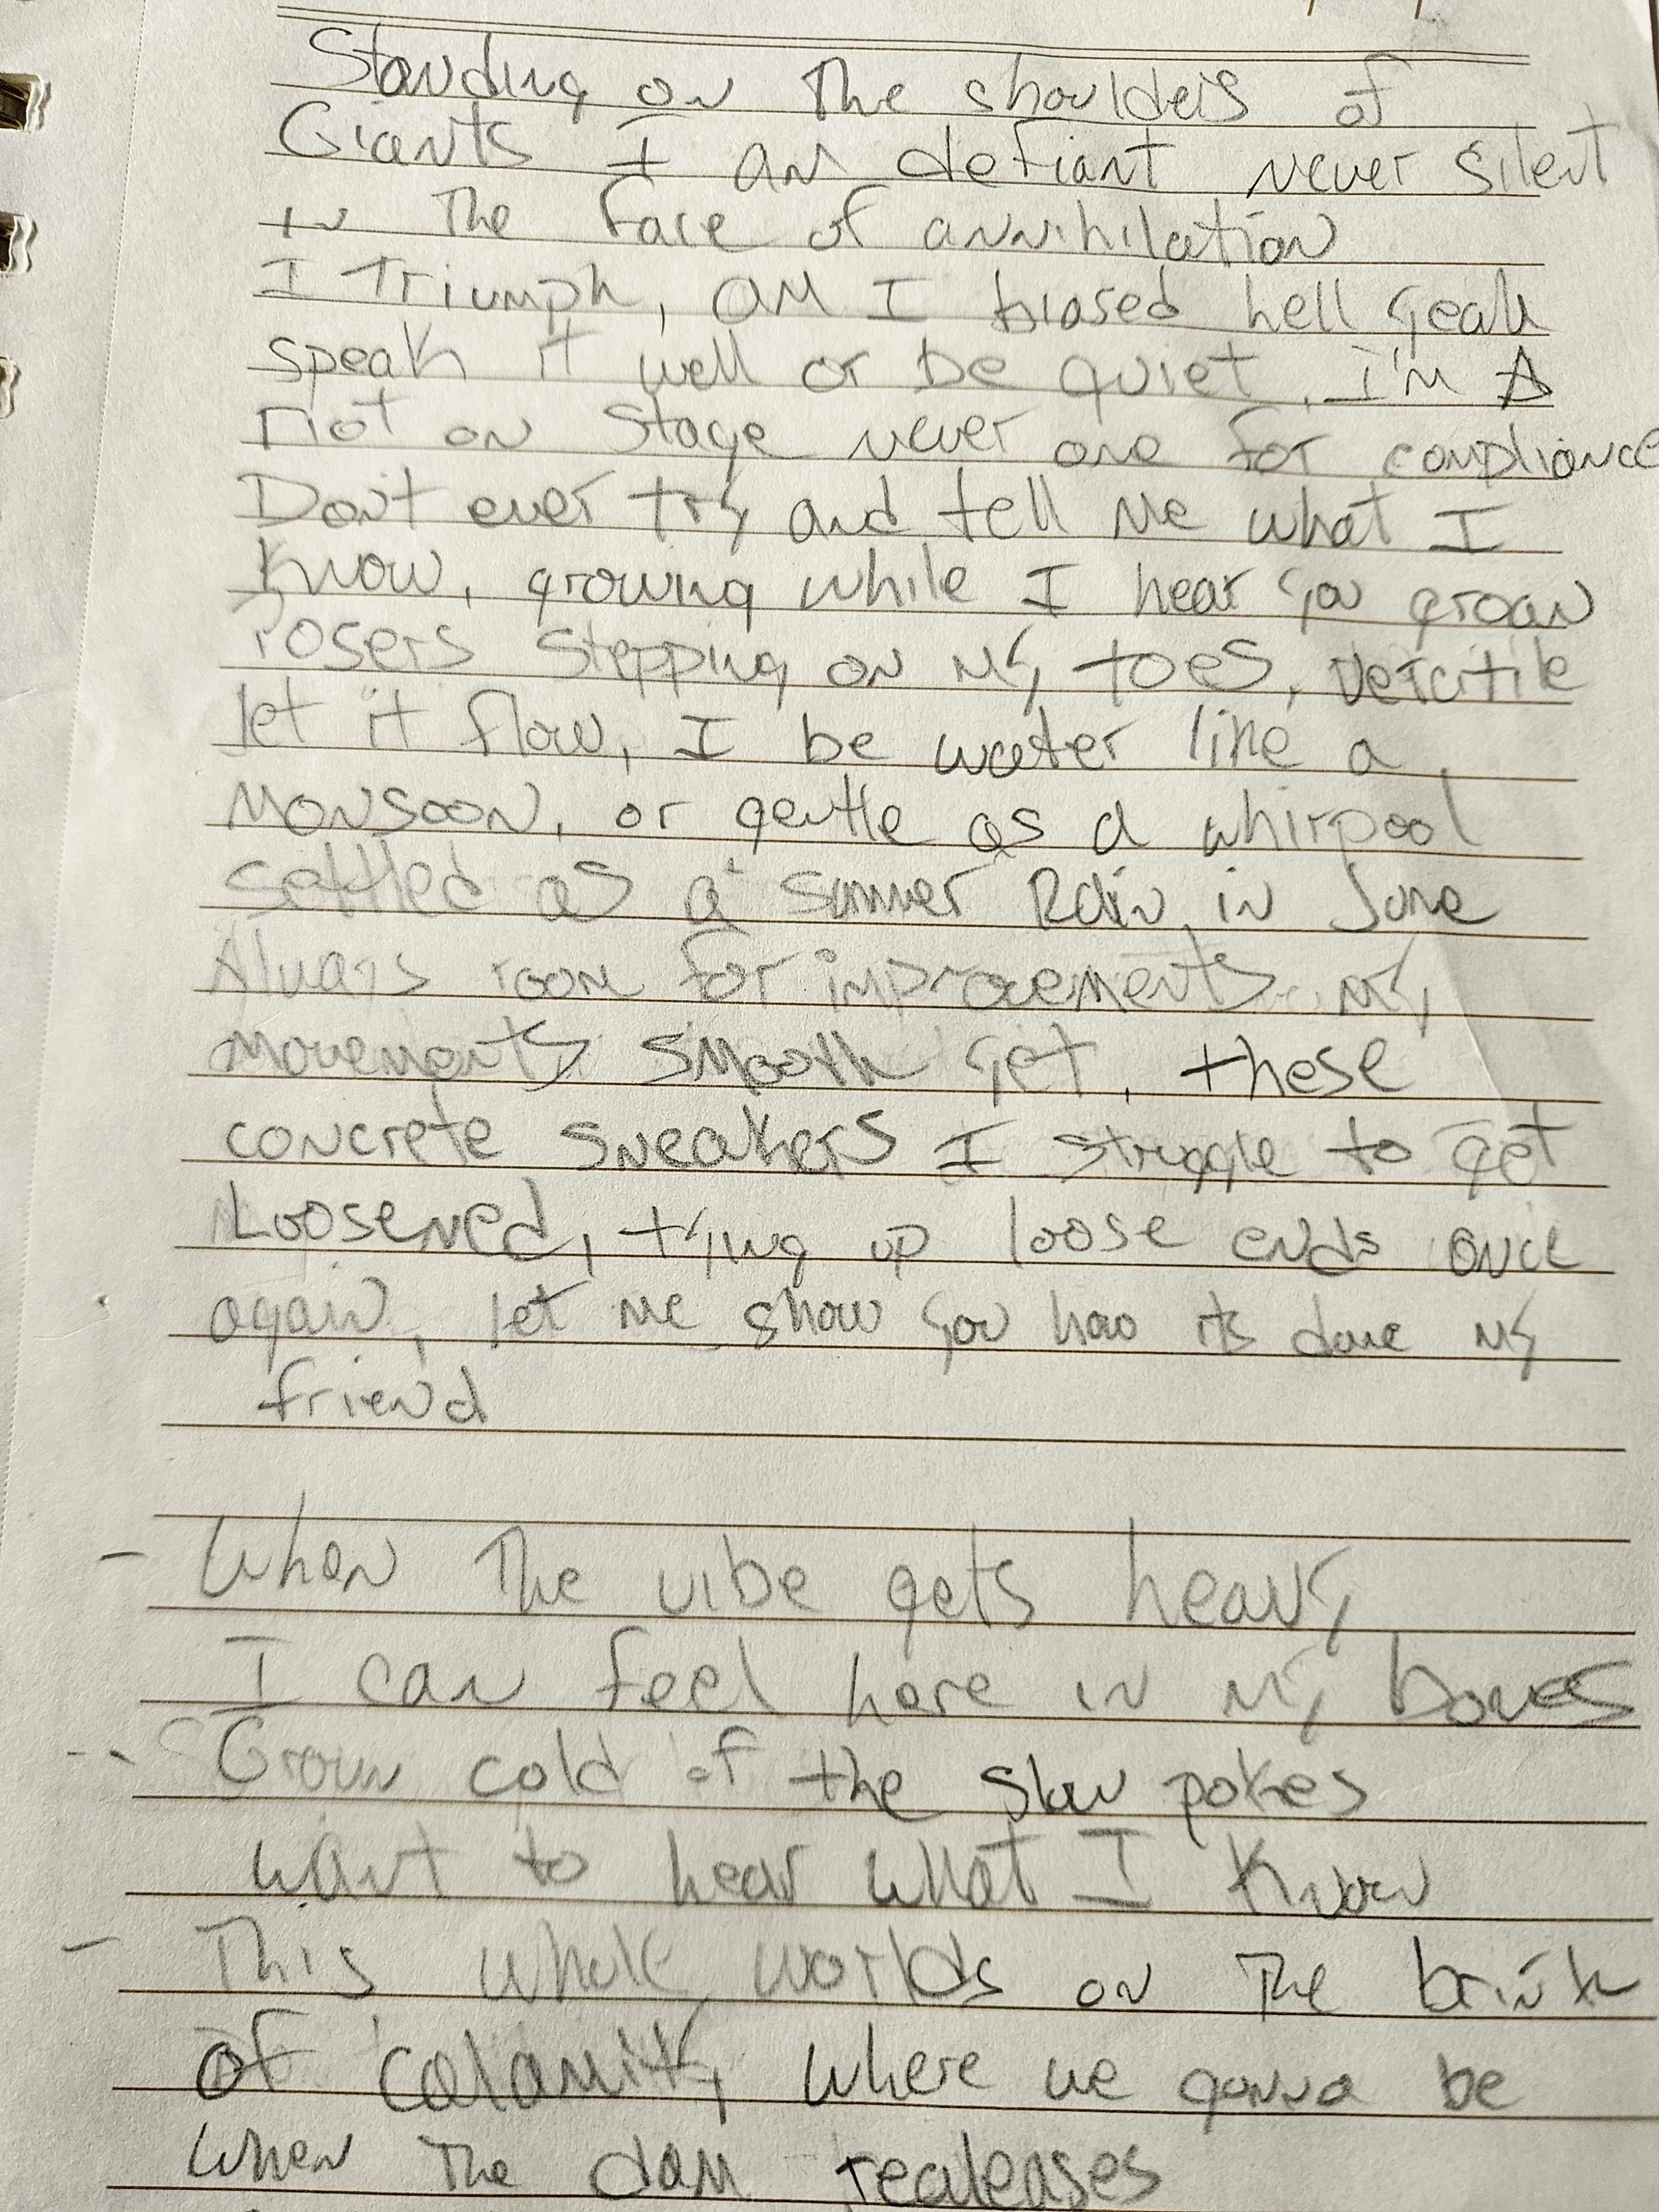 Standing on The shoulders of
Giants I am defiant never silent
in The face of annihilation
I Triumph, am I biased hell yeah
speak it well or be quiet, I'm A
riot on stage never one for compliance
Don't ever try and tell me what I
Know, growing while I hear you groan
Posers stepping on my toes, vercitile
let it flow, I be water like a
monsoon, or gentle as a whirpool
settled as a summer Rain in June
Always room for improvements my
movements smooth yet, these
concrete sneakers I struggle to get
Loosened, tying up loose ends once
again, let me show you how its done my
friend
- When The vibe gets heavy
I can feel here in my bones
-- Grown cold of the slow pokes
want to hear what I Know
- This whole worlds on The brink
of calamity where we gonna be
when The dam realeases